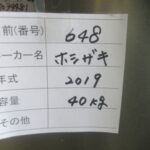 前(番号) 648
ーカー名 ホシザキ
年式 2019
容量 40kg
その他